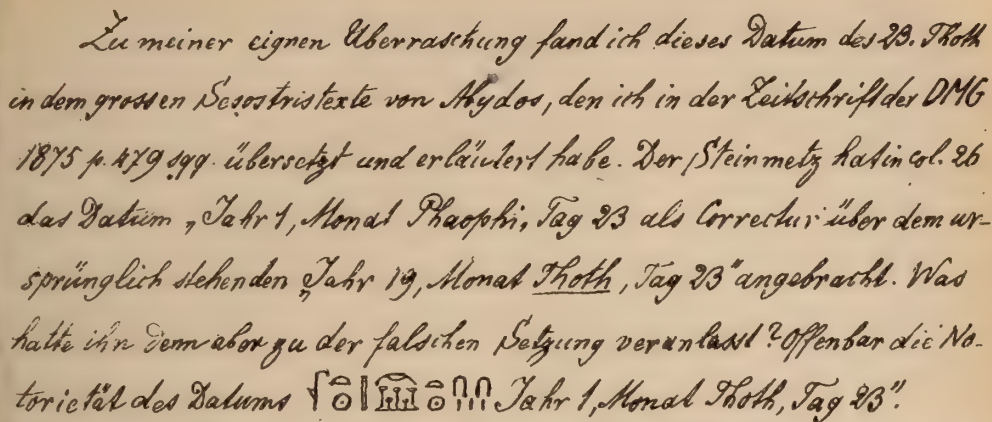 Zu meiner eignen Überraschung fand ich dieses Datum des 23. Thoth
in dem grossen Sesostristexte von Abydos, den ich in der Zeitschrift der DMG
1875 p. 479 sqq. übersetzt und erläutert habe. Der Steinmetz hat in col. 26
das Datum „Jahr 1, Monat Phaophi, Tag 23 als Correctur über dem ur-
sprünglich stehenden „Jahr 19, Monat Thoth, Tag 23" angebracht. Was
hatte ihn denn aber zu der falschen Setzung veranlasst? Offenbar die No-
torietät des Datums Jahr 1, Monat Thoth, Tag 23".